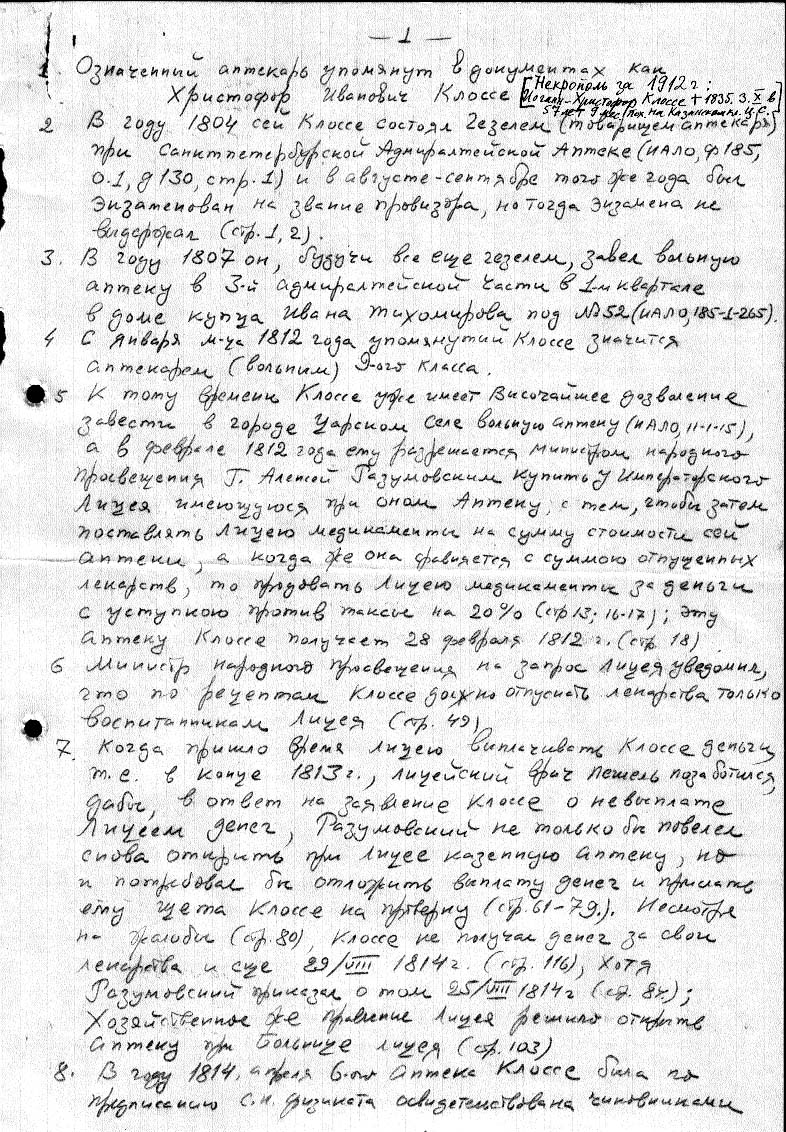 — 1 —
1. Означенный аптекарь упомянут в документах как
Христофор Иванович Клоссе
[Некрополь за 1912 г:
Иоганн-Христофор Клоссе + 1835.3.X в
57 лет 9 мес (пох. на Казанском кл. Ц.С.]
2 В году 1804 сей Клоссе состоял Гезелем (товарищем аптекаря)
при Санктпетербургской Адмиралтейской Аптеке (ИАЛО, ф 185,
о.1, д 130, стр. 1) и в августе-сентябре того же года был
экзаменован на звание провизора, но тогда экзамена не
выдержал (стр. 1, 2).
3. В году 1807 он, будучи все еще гезелем, завел вольную
аптеку в 3-й адмиралтейской части в 1-м квартале
в доме купца Ивана Тихомирова под №52 (ИАЛО, 185-1-265).
4 С января м-ца 1812 года упомянутый Клоссе значится
аптекарем (вольным) 9-ого класса.
5 К тому времени Клоссе уже имеет Высочайшее дозволение
завести в городе Царском Селе вольную аптеку (ИАЛО, 11-1-15),
а в феврале 1812 года ему разрешается министром народного
просвещения Г. Алексой Разумовским купить у Императорского
Лицея имеющуюся при оном Аптеку, с тем, чтобы затем
поставлять Лицею медикаменты на сумму стоимости сей
аптеки, а когда же она сравняется с суммою отпущенных
лекарств, то продовать Лицею медикаменты за деньги
с уступкою против таксы на 20% (стр 13; 16-17); эту
аптеку Клоссе получает 28 февраля 1812 г. (стр. 18)
6 Министр народного просвещения на запрос Лицея уведомил,
что по рецептам Клоссе должно отпускать лекарства только
воспитанникам Лицея (стр. 49)
7. Когда пришло время Лицею выплачивать Клоссе деньги,
т.е. в конце 1813 г., лицейский врач Пешель позаботился,
дабы, в ответ на заявление Клоссе о невыплате
Лицеем денег, Разумовский не только бы повелел
снова открыть при Лицее казенную аптеку, но
и потребовал бы отложить выплату денег и прислать
ему щета Клоссе на проверку (стр. 61-79.). Несмотря
на жалобы (стр. 80), Клоссе не получал денег за свои
лекарства и еще 29/VIII 1814 г. (стр. 116), хотя
Разумовский приказал о том 25/VIII 1814 г (стр. 84);
Хозяйственное же правление Лицея решило открыть
аптеку при больнице лицея (стр. 103)
8. В году 1814, апреля 6-ого Аптека Клоссе была по
предписанию с.п. физиката освидетельствована чиновниками